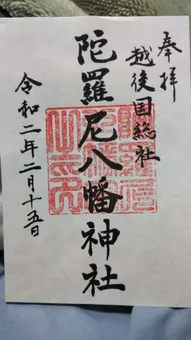 奉拝
越後国総社
陀羅尼八幡神社
令和二年二月十五日